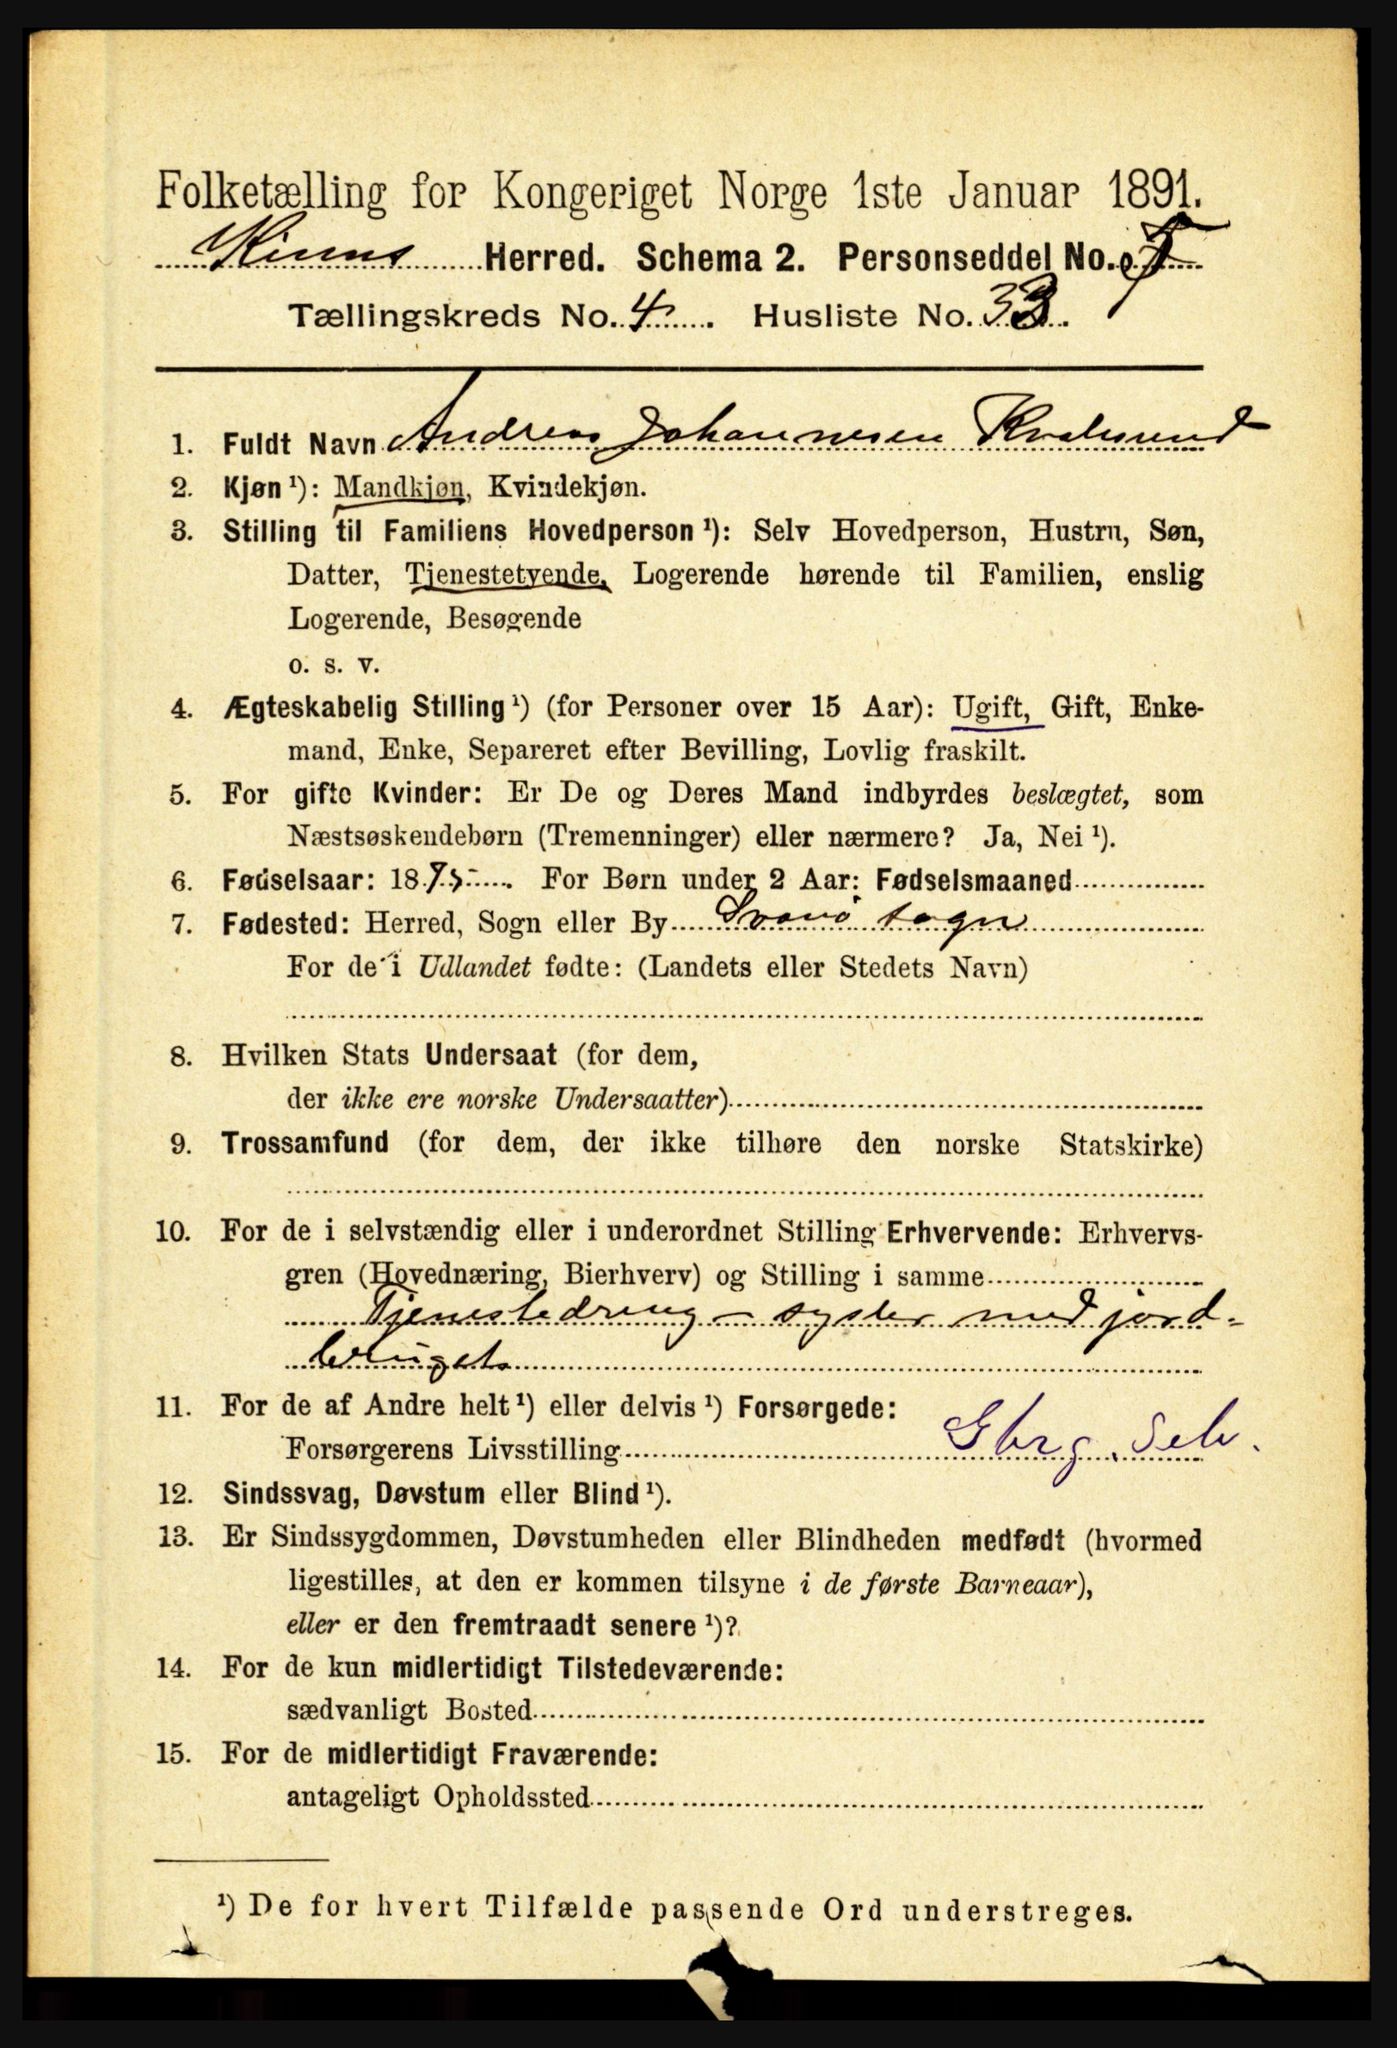 Folketælling for Kongeriget Norge 1ste Januar 1891.
Kinns Herred. Schema 2. Personseddel No.
Tællingskreds No. 4. Husliste No. 33.
1. Fuldt Navn Andreas Johannesen Kvalsund
2. Kjøn ¹): Mandkjøn, Kvindekjøn.
3. Stilling til Familiens Hovedperson ¹): Selv Hovedperson, Hustru, Søn,
Datter, Tjenestetyende, Logerende hørende til Familien, enslig
Logerende, Besøgende
o. s. v.
4. Ægteskabelig Stilling ¹) (for Personer over 15 Aar): Ugift, Gift, Enke-
mand, Enke, Separeret efter Bevilling, Lovlig fraskilt.
5. For gifte Kvinder: Er De og Deres Mand indbyrdes beslægtet, som
Næstsøskendebørn (Tremenninger) eller nærmere? Ja, Nei ¹).
6. Fødselsaar: 1875. For Børn under 2 Aar: Fødselsmaaned
7. Fødested: Herred, Sogn eller By Svanø sogn
For de i Udlandet fødte: (Landets eller Stedets Navn)
8. Hvilken Stats Undersaat (for dem,
der ikke ere norske Undersaatter)
9. Trossamfund (for dem, der ikke tilhøre den norske Statskirke)
10. For de i selvstændig eller i underordnet Stilling Erhvervende: Erhvervs-
gren (Hovednæring, Bierhverv) og Stilling i samme
Tjenestedreng - sysler med jord-
bruget
11. For de af Andre helt ¹) eller delvis ¹) Forsørgede:
Forsørgerens Livsstilling Gbrg. Selv.
12. Sindssvag, Døvstum eller Blind ¹).
13. Er Sindssygdommen, Døvstumheden eller Blindheden medfødt (hvormed
ligestilles, at den er kommen tilsyne i de første Barneaar),
eller er den fremtraadt senere ¹)?
14. For de kun midlertidigt Tilstedeværende:
sædvanligt Bosted
15. For de midlertidigt Fraværende:
antageligt Opholdssted
¹) De for hvert Tilfælde passende Ord understreges.